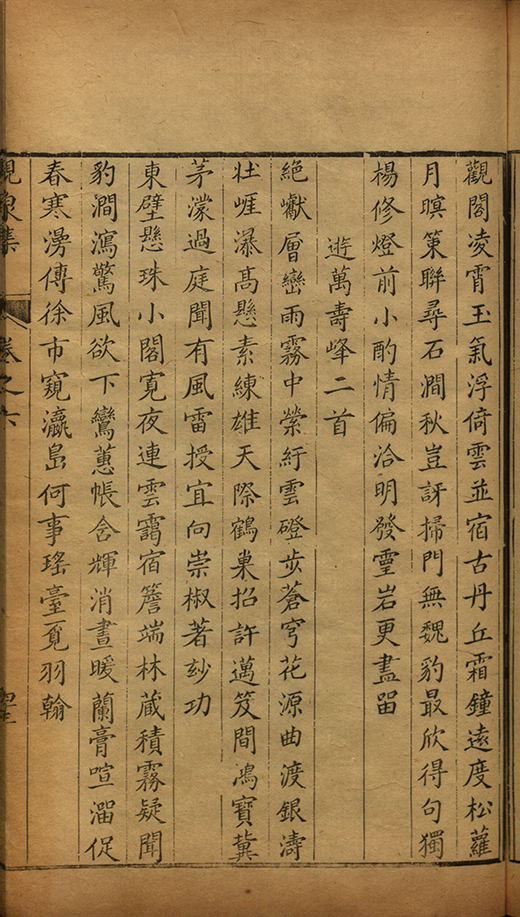 觀閣凌霄玉氣浮倚雲並宿古丹丘霜鐘遠度松蘿
月暝策聯尋石澗秋豈訝掃門無魏豹最欣得句獨
楊修燈前小酌情偏洽明發霊岩更盡畱
遊萬壽峰二首
絶巘層巒雨霧中縈紆雲磴步蒼穹花源曲渡銀濤
壯崕瀑髙懸素練雄天際鶴巢招許邁笈間鴻寶冀
茅濛過庭聞有風雷授宜向崇椒著玅功
東壁懸珠小閣寛夜連雲靄宿簷端林蔵積霧疑聞
豹澗瀉驚風欲下鸞蕙帳含輝消晝暖蘭膏喧溜促
春寒漫傳徐市窺瀛島何事瑤臺覓羽翰
觀象集
卷之六